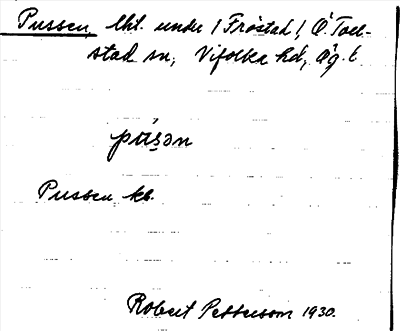 Pussen, lht. under 1 Fröstad 1, Ö. Tol-
stad sn, Vifolka hd, Ög. l.
Pussen kb.
Robert Pettersson 1930.